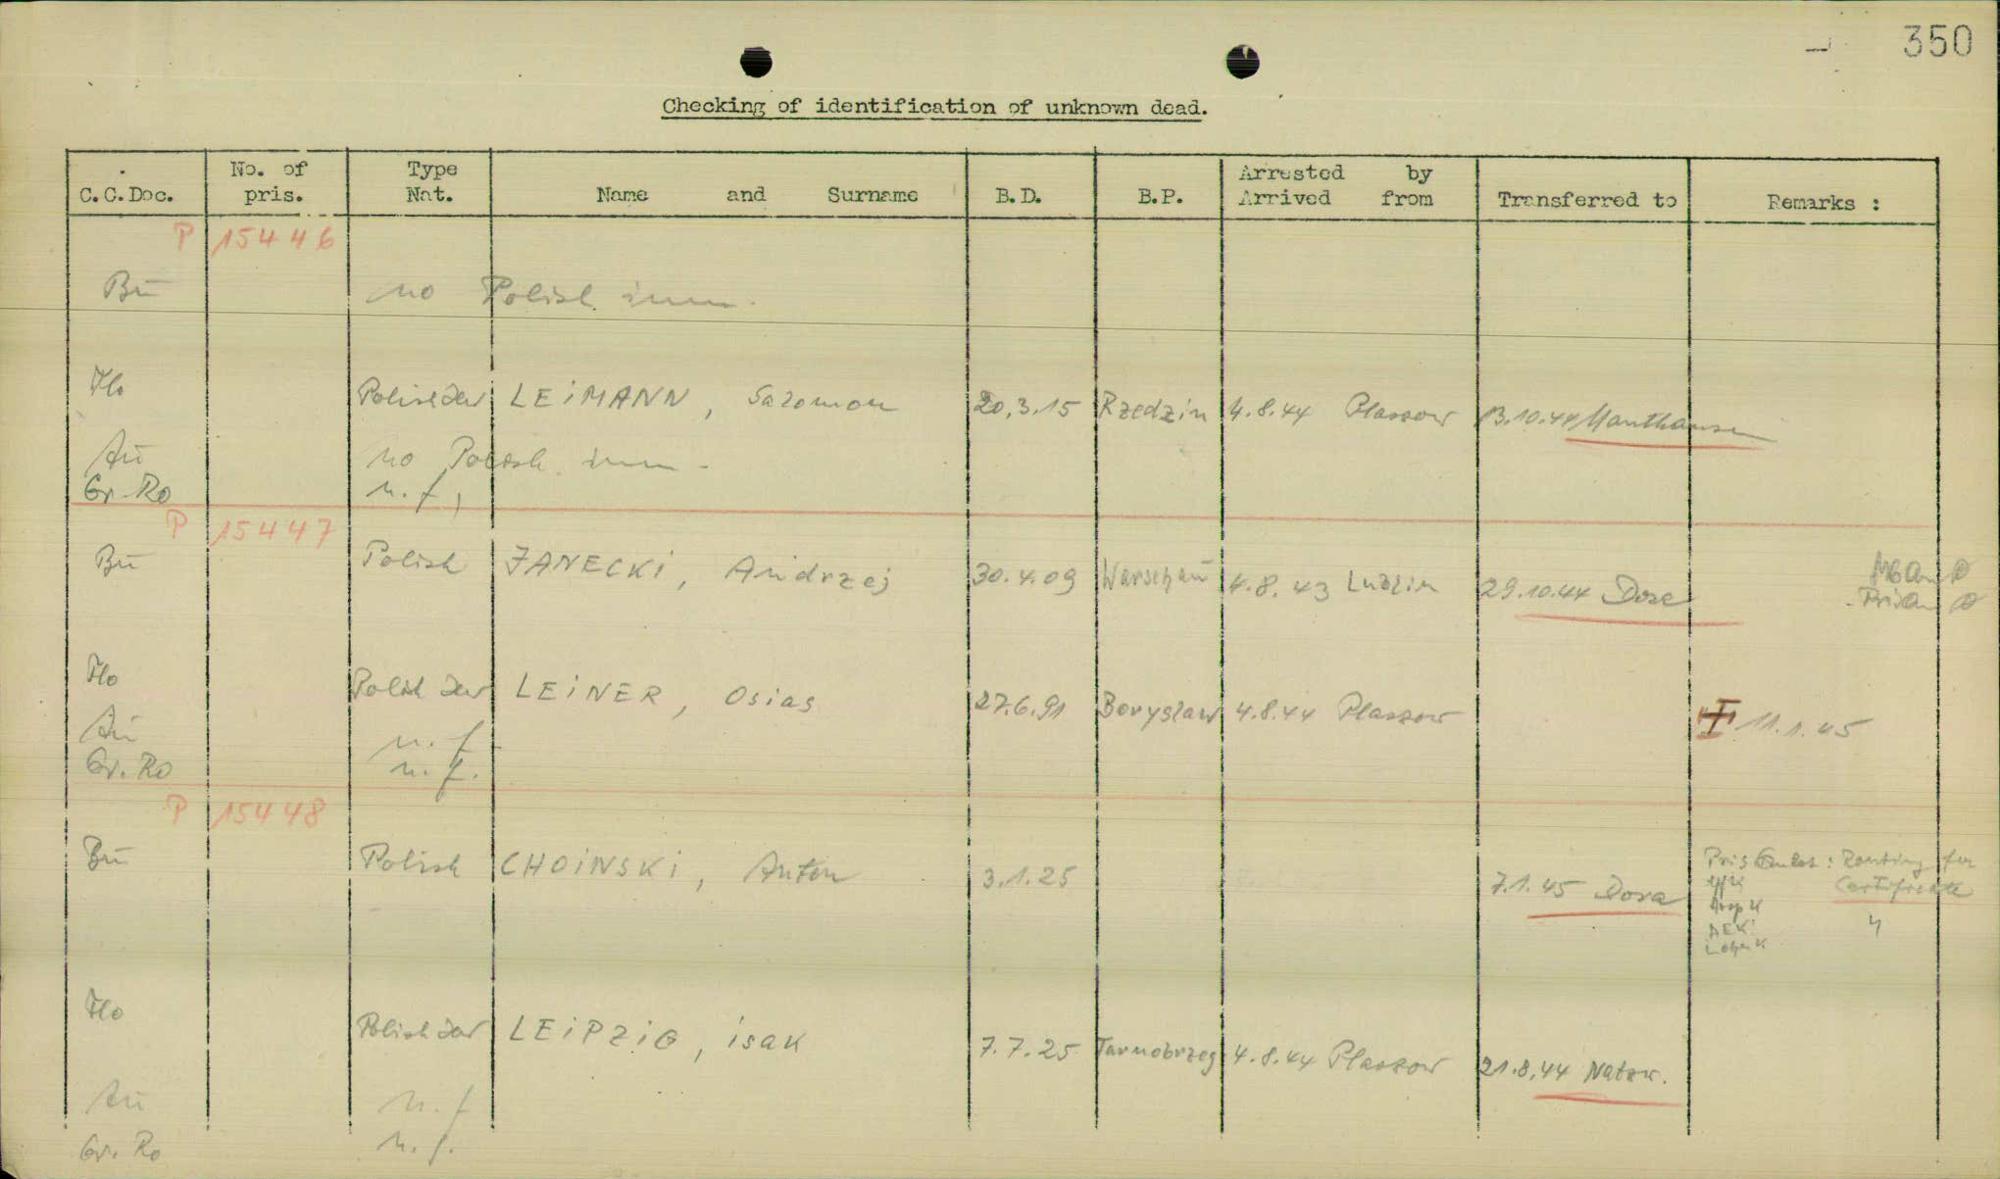 350
Checking of identification of unknown dead.
C.C.Doc. No. of pris. Type Nat. Name and Surname B.D. B.P. Arrested by Arrived from Transferred to Remarks :
P 15446
Bū no Polish inm.
Flo Polish Jew LEiMANN, Salomon 20.3.15 Rzedzin 4.8.44 Plaszow 13.10.44 Mauthausen
Aū no Polish inm.
Gr. Ro n.f.
P 15447
Bū Polish JANECKi, Andrzej 30.4.09 Warschau 4.8.43 Lublin 29.10.44 Dora
Flo Polish Jew LEiNER, Osias 27.6.91 Boryslaw 4.8.44 Plaszow 11.1.45
Aū n.f.
Gr. Ro n.f.
P 15448
Bū Polish CHOiNSKi, Anton 3.1.25 7.1.45 Dora
Certificate
Flo Polish Jew LEiPZiG, isak 7.7.25 Tarnobrzeg 4.8.44 Plaszow 21.8.44 Natzw.
Aū n.f
Gr. Ro n.f.